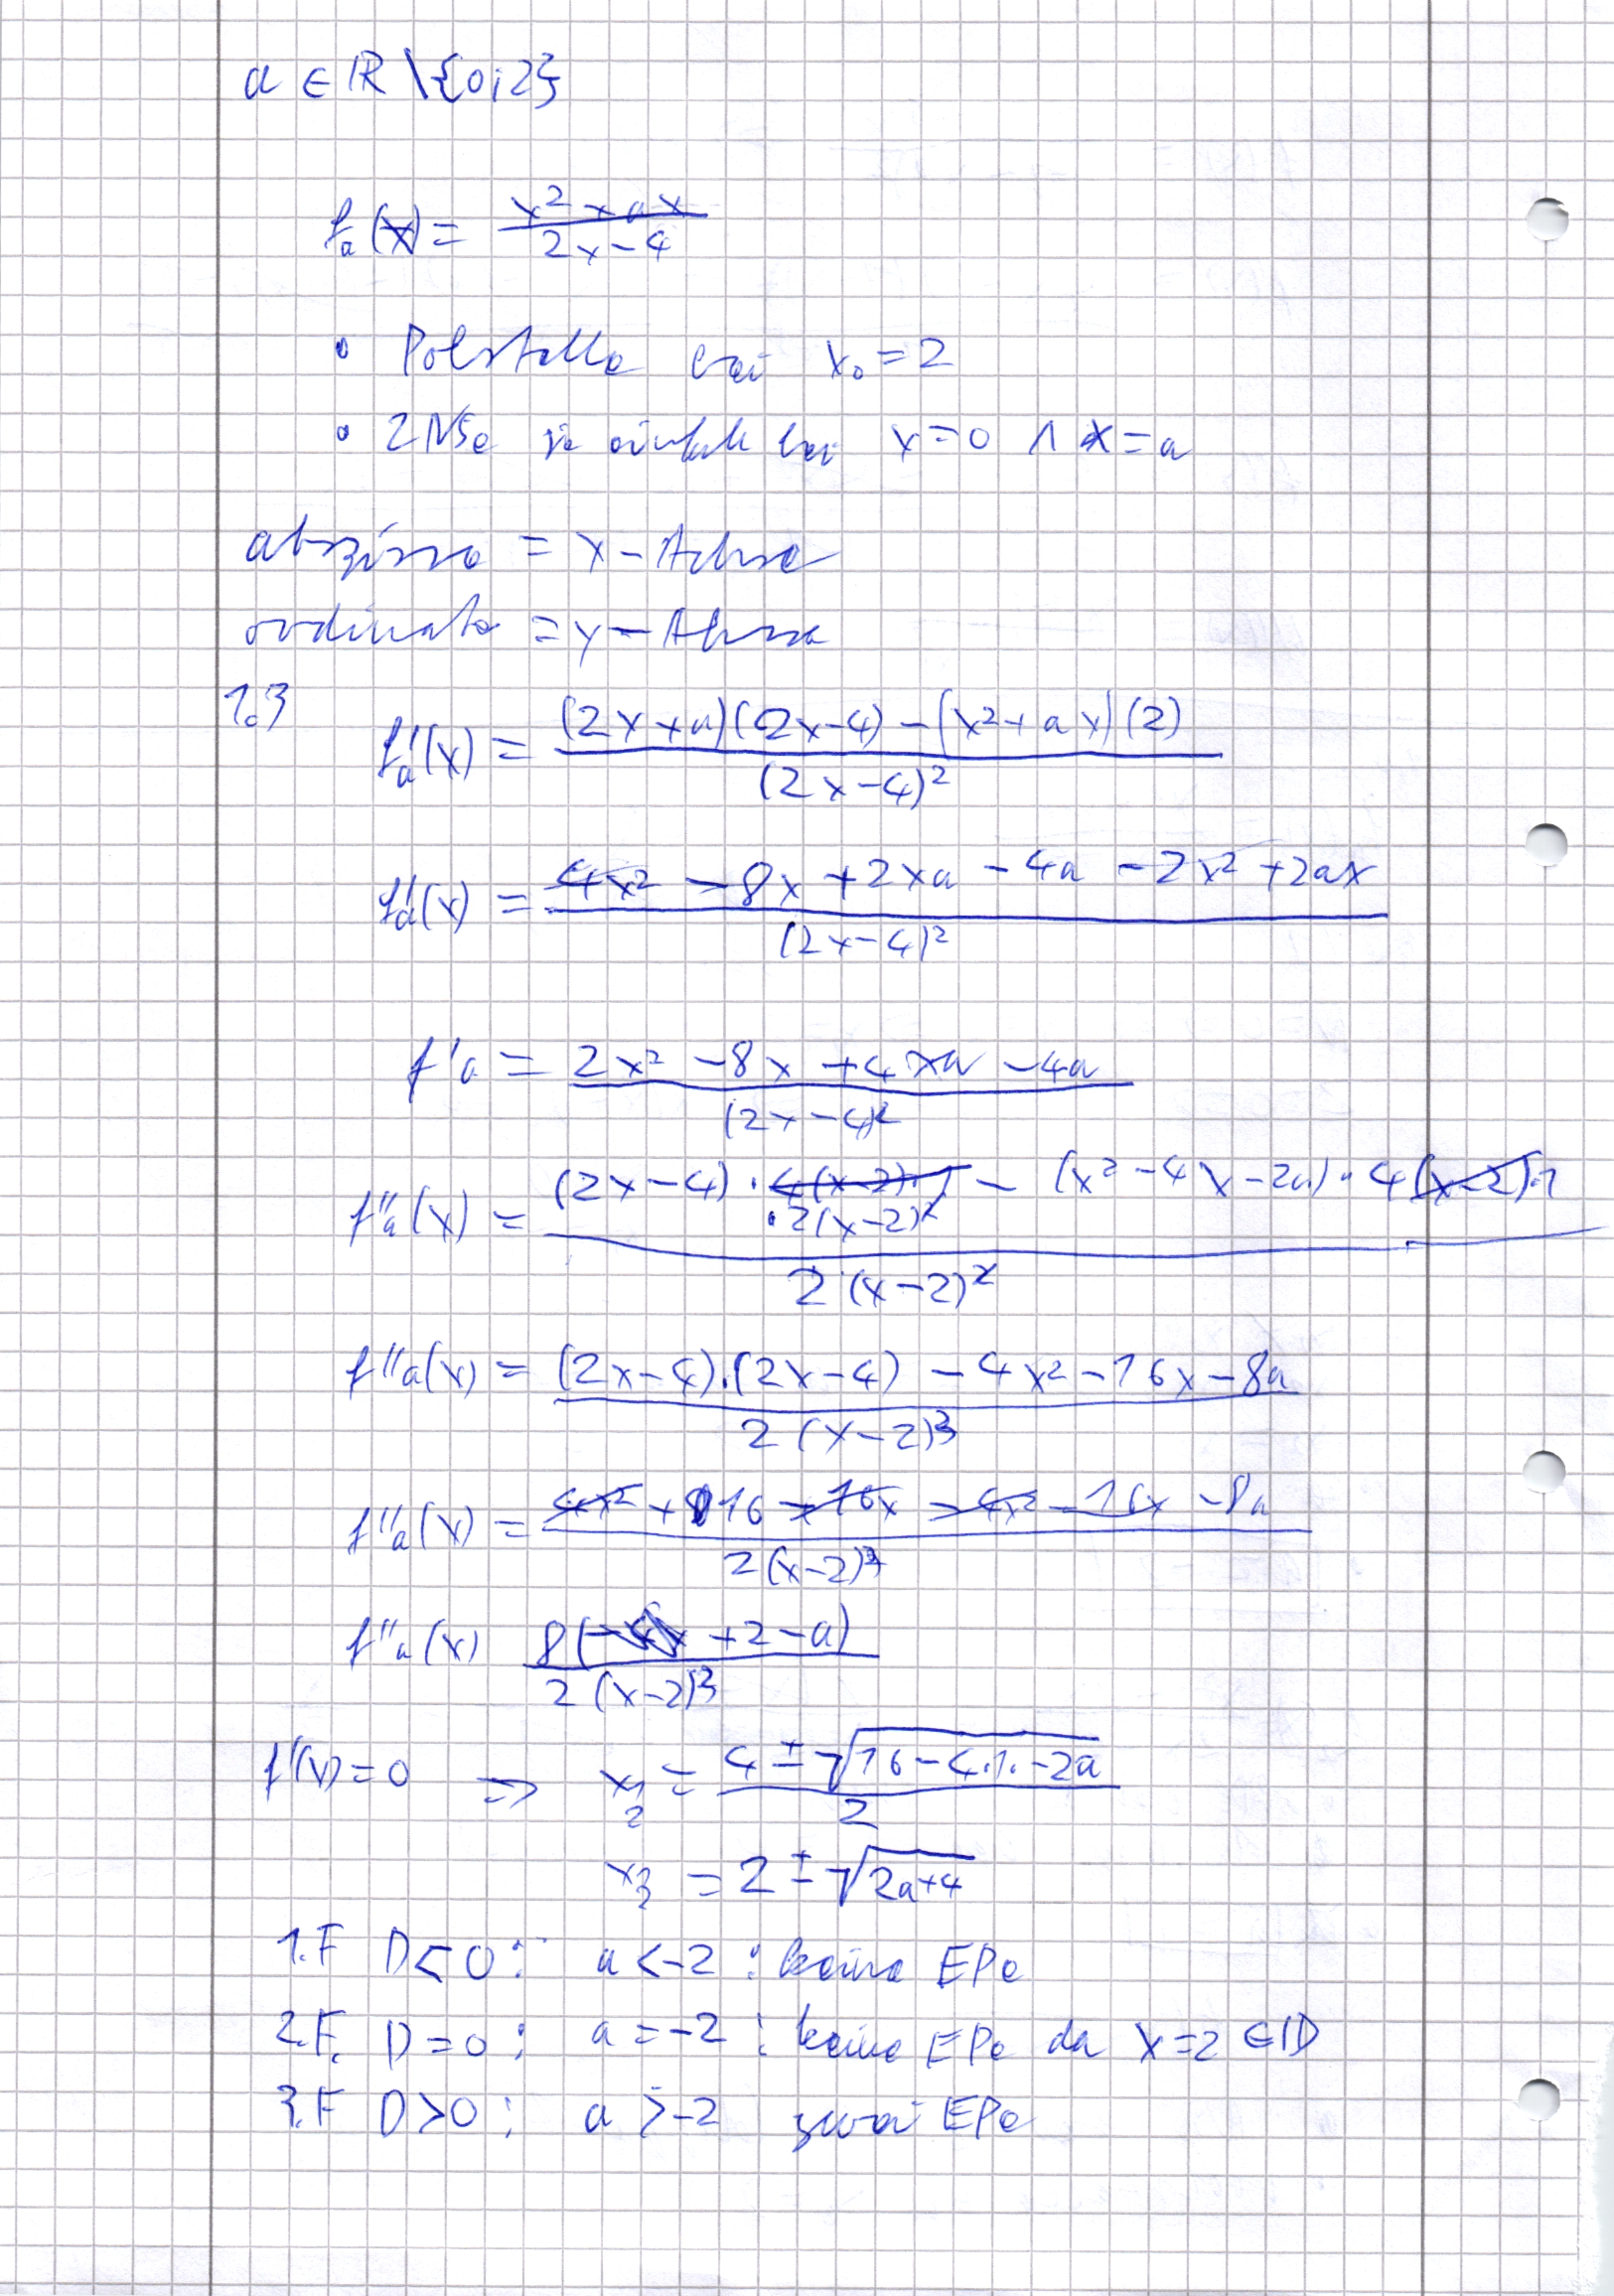 a ∈ ℝ \ {0;2}
fa(x) = (x² + ax)/(2x − 4)
• Polstelle bei x₀ = 2
• 2 NSe je einfach bei x = 0 ∧ x = a
abszisse = x-Achse
ordinate = y-Achse
1.3
fa'(x) = ((2x + a)(2x − 4) − (x² + ax)(2))/((2x − 4)²)
fa'(x) = (4x² − 8x + 2xa − 4a − 2x² + 2ax)/((2x − 4)²)
f'a = (2x² − 8x + 4xa − 4a)/((2x − 4)²)
f''a(x) = ((2x − 4) · 2(x − 2)² − (x² − 4x − 2a) · 4(x − 2) · 1)/(2(x − 2)²)
f''a(x) = ((2x − 4) · (2x − 4) − 4x² − 16x − 8a)/(2(x − 2)³)
f''a(x) = (4x² + 16 − 16x − 4x² − 16x − 8a)/(2(x − 2)³)
f''a(x) 8( + 2 − a)/(2(x − 2)³)
f'(x) = 0 ⇒ x½ = (4 ± √(16 − 4·1·−2a))/2
x½ = 2 ± √(2a + 4)
1.F D < 0 : a < −2 : keine EPe
2.F. D = 0 : a = −2 : keine EPe da x = 2 ∈ D
3.F D > 0 : a > −2 zwei EPe